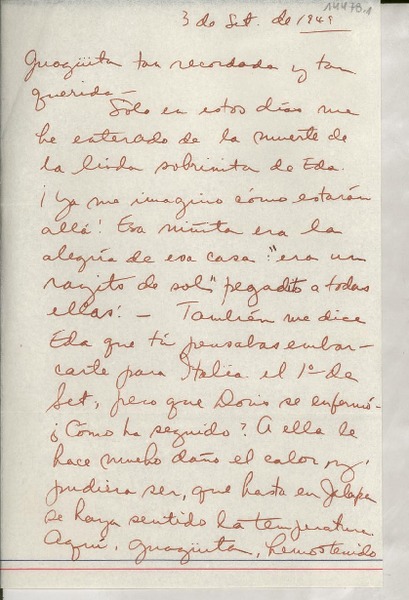 14478.1
3 de Set. de 1949
Guagüita tan recordada y tan
querida—
Sólo en estos días me
he enterado de la muerte de
la linda sobrinita de Eda.
¡Ya me imagino cómo estarán
allá! Esa niñita era la
alegría de esa casa: "era un
rayito de sol" pegadito a todas
ellas! — También me dice
Eda que tú pensabas embar-
carte para Italia el 1º de
Set, pero que Doris se enfermó.
¿Cómo ha seguido? A ella le
hace mucho daño el calor, y,
pudiera ser, que hasta en Jalapa
se haya sentido la temperatura.
Aquí, guagüita, hemos tenido